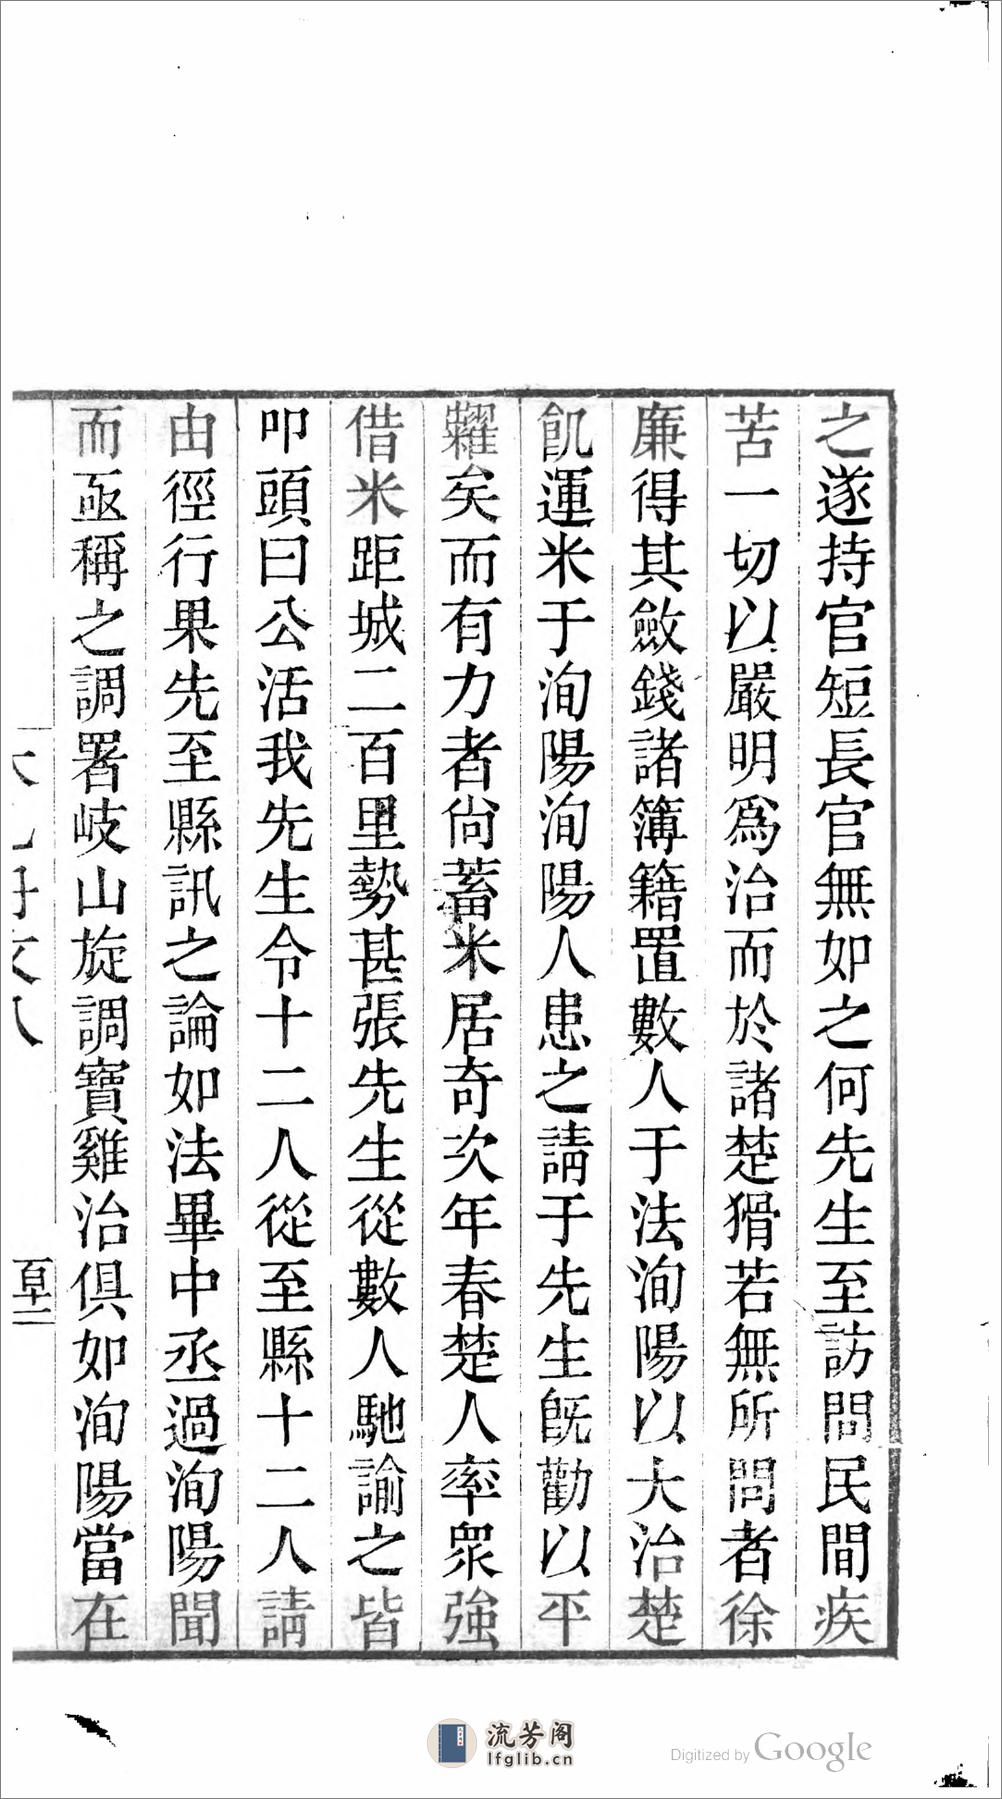 之遂持官短長官無如之何先生至訪問民間疾
苦一切以嚴明爲治而於諸楚猾若無所問者徐
廉得其斂錢諸簿籍置數人于法洵陽以大治楚
飢運米于洵陽洵陽人患之請于先生旣勸以平
糶矣而有力者尙蓄米居奇次年春楚人率衆強
借米距城二百里勢甚張先生從數人馳諭之皆
叩頭曰公活我先生令十二人從至縣十二人請
由徑行果先至縣訊之論如法畢中丞過洵陽聞
而亟稱之調署岐山旋調寶雞治俱如洵陽當在
流芳阁
lfglib.cn
Digitized by Google